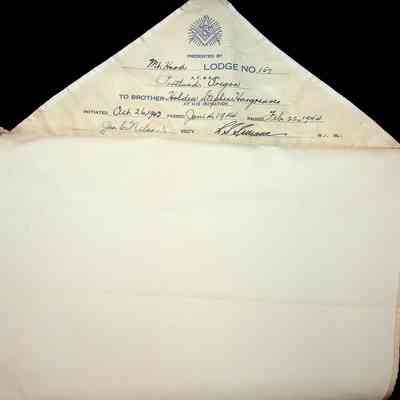 PRESENTED BY
Mt. Hood LODGE NO. 157
Portland Oregon
TO BROTHER Holden Stephen Hargreaves
AT HIS INITIATION
INITIATED Oct 26, 1943 PASSED Jan 6, 1944 RAISED Feb 22, 1944
SECY. W. M.